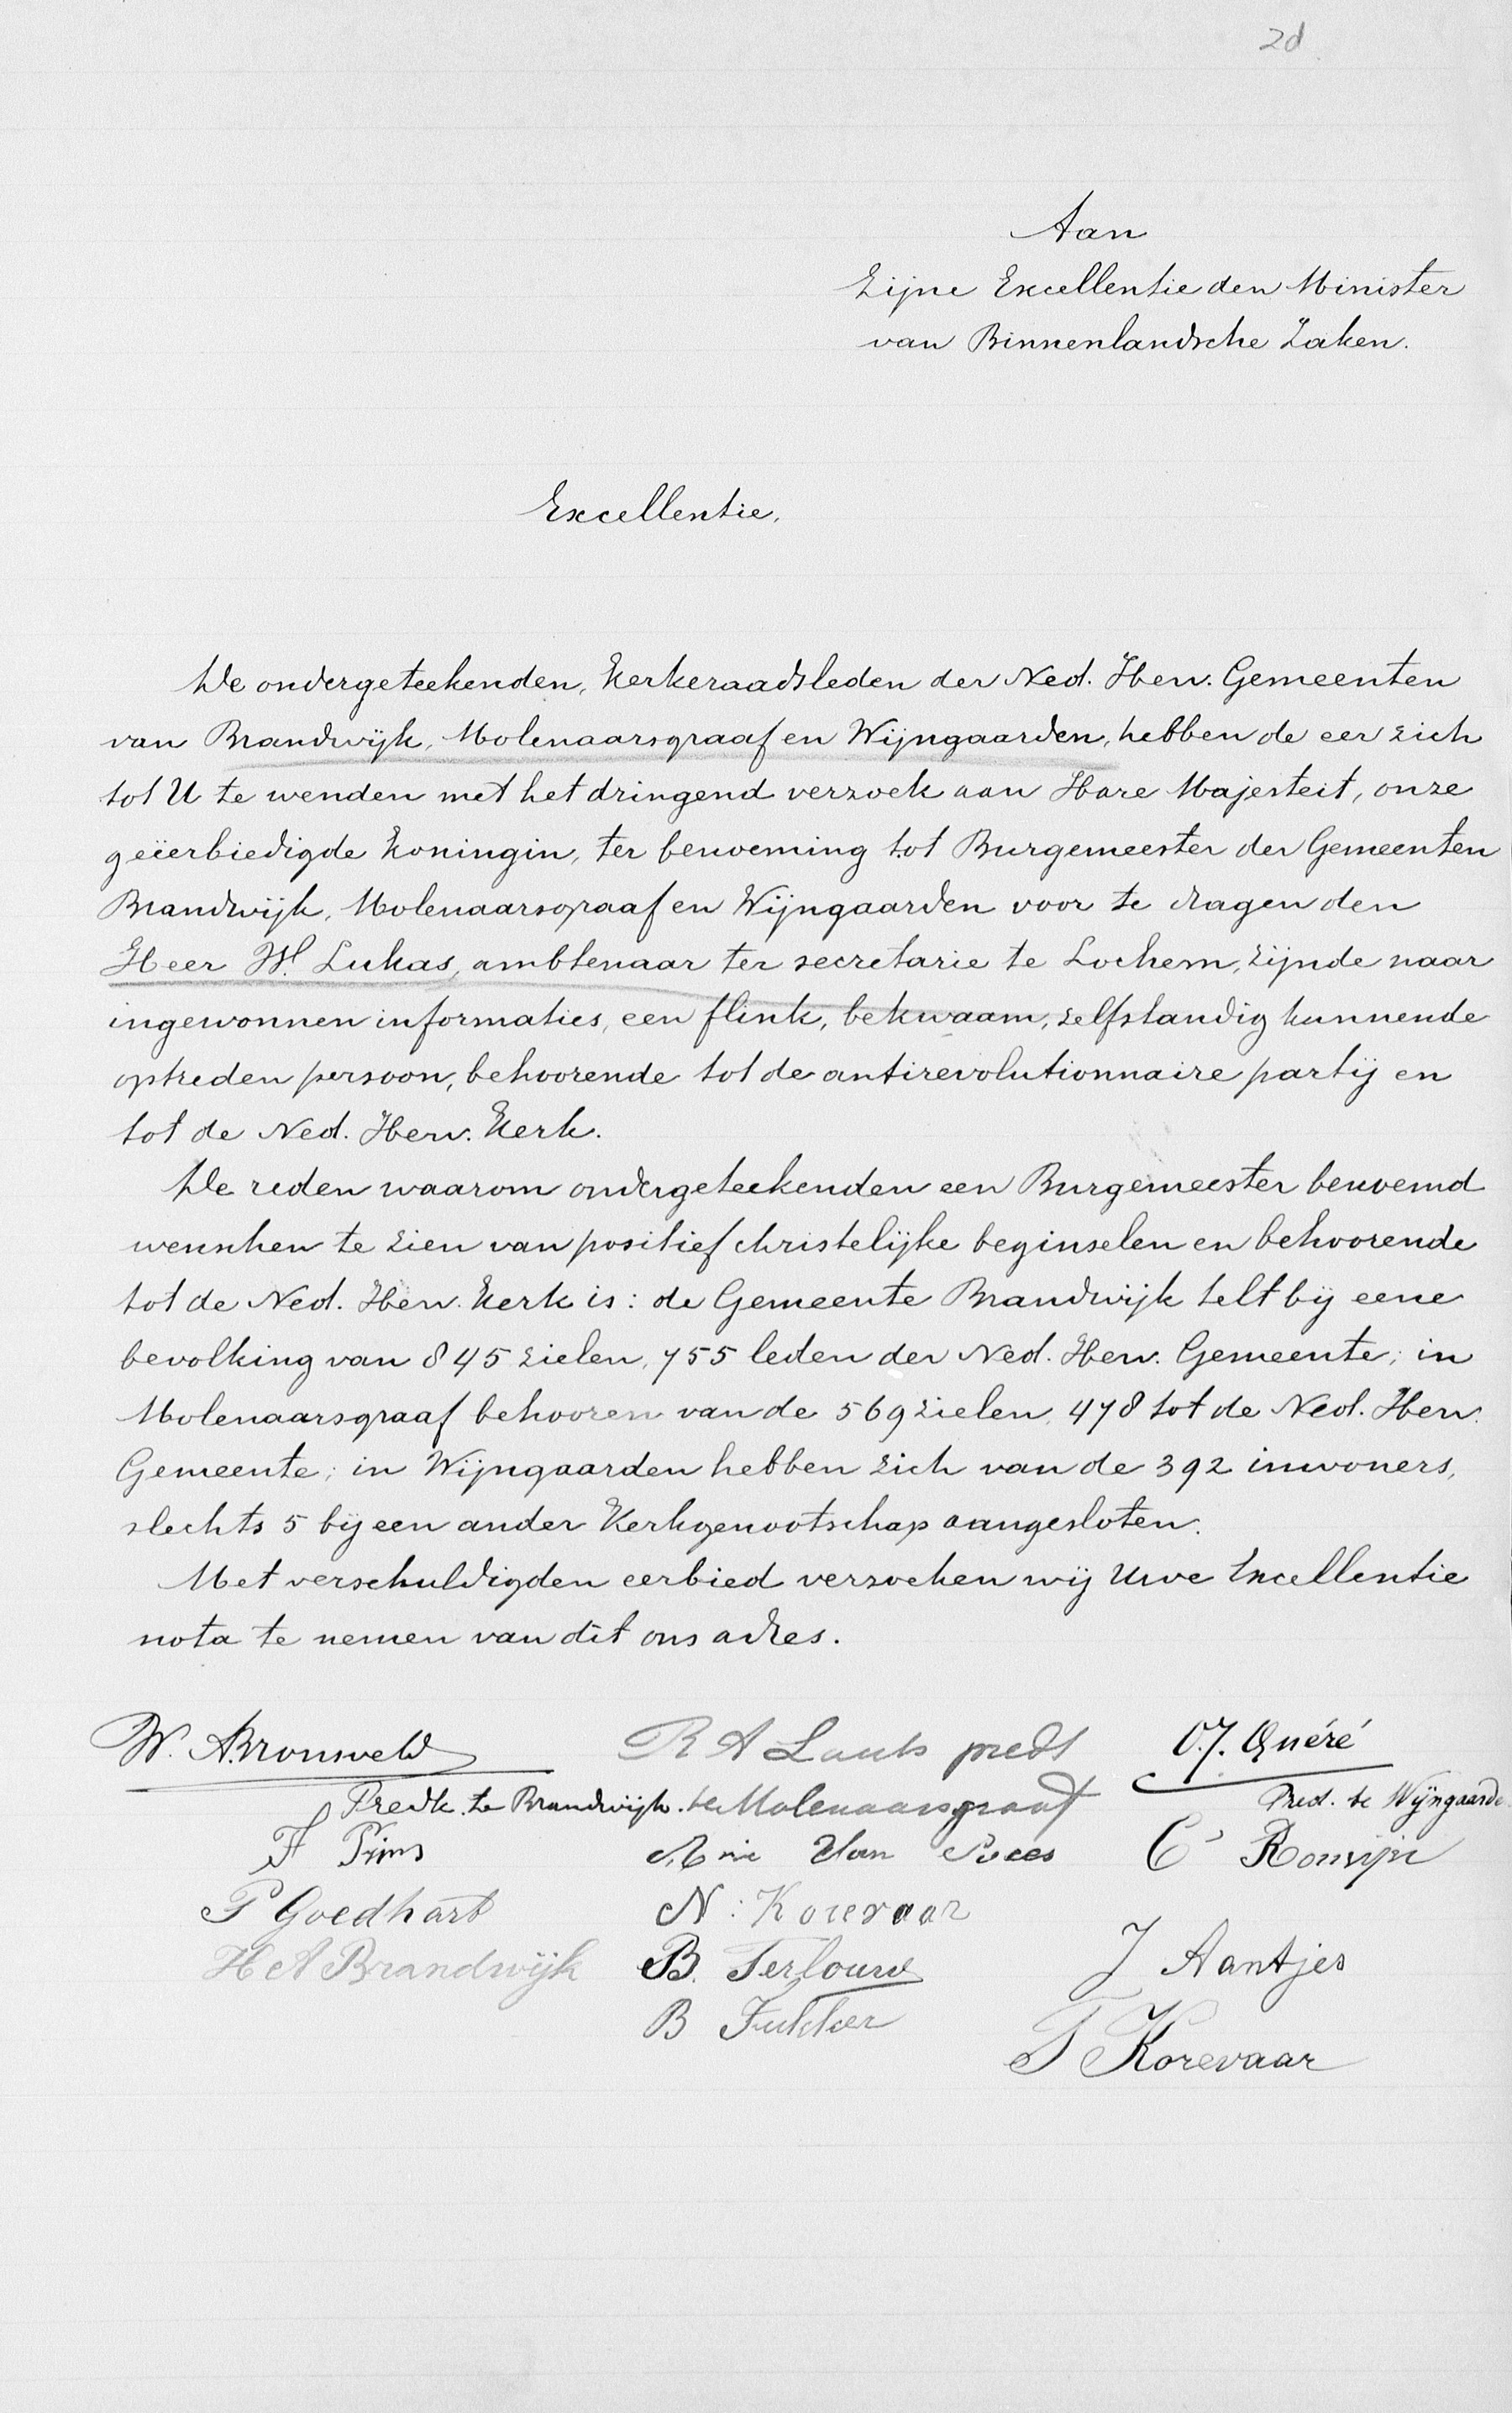 2d
Aan
Zijne Excellentie den Minister
van Binnenlandsche Zaken.
Excellentie,
De ondergeteekenden, Kerkeraadsleden der Ned. Herv. Gemeenten
van Brandwijk, Molenaarsgraaf en Wijngaarden, hebben de eer zich
tot U te wenden met het dringend verzoek aan Hare Majesteit, onze
geëerbiedigde Koningin, ter benoeming tot Burgemeester der Gemeenten
Brandwijk, Molenaarsgraaf en Wijngaarden voor te dragen den
Heer W. Lukas, ambtenaar ter secretarie te Lochem, zijnde naar
ingewonnen informaties, een flink, bekwaam, zelfstandig kunnende
optreden persoon, behoorende tot de antirevolutionnaire partij en
tot de Ned. Herv. Kerk.
De reden waarom ondergeteekenden een Burgemeester benoemd
wenschen te zien van positief christelijke beginselen en behoorende
tot de Ned. Herv. Kerk is: de Gemeente Brandwijk telt bij eene
bevolking van 845 zielen, 755 leden der Ned. Herv. Gemeente; in
Molenaarsgraaf behooren van de 569 zielen, 478 tot de Ned. Herv.
Gemeente; in Wijngaarden hebben zich van de 392 inwoners,
slechts 5 bij een ander Kerkgenootschap aangesloten.
Met verschuldigden eerbied verzoeken wij Uwe Excellentie
nota te nemen van dit ons adres.
W. A. Bronsveld R A Lauts predt O.J. Quéré
Predk. te Brandwijk. te Molenaarsgraaf Pred. te Wijngaarde
F Pims van C Rouwijn
P Goedhart N: Korevaar
H A Brandwijk B. Terlouw J Aantjes
B T Korevaar